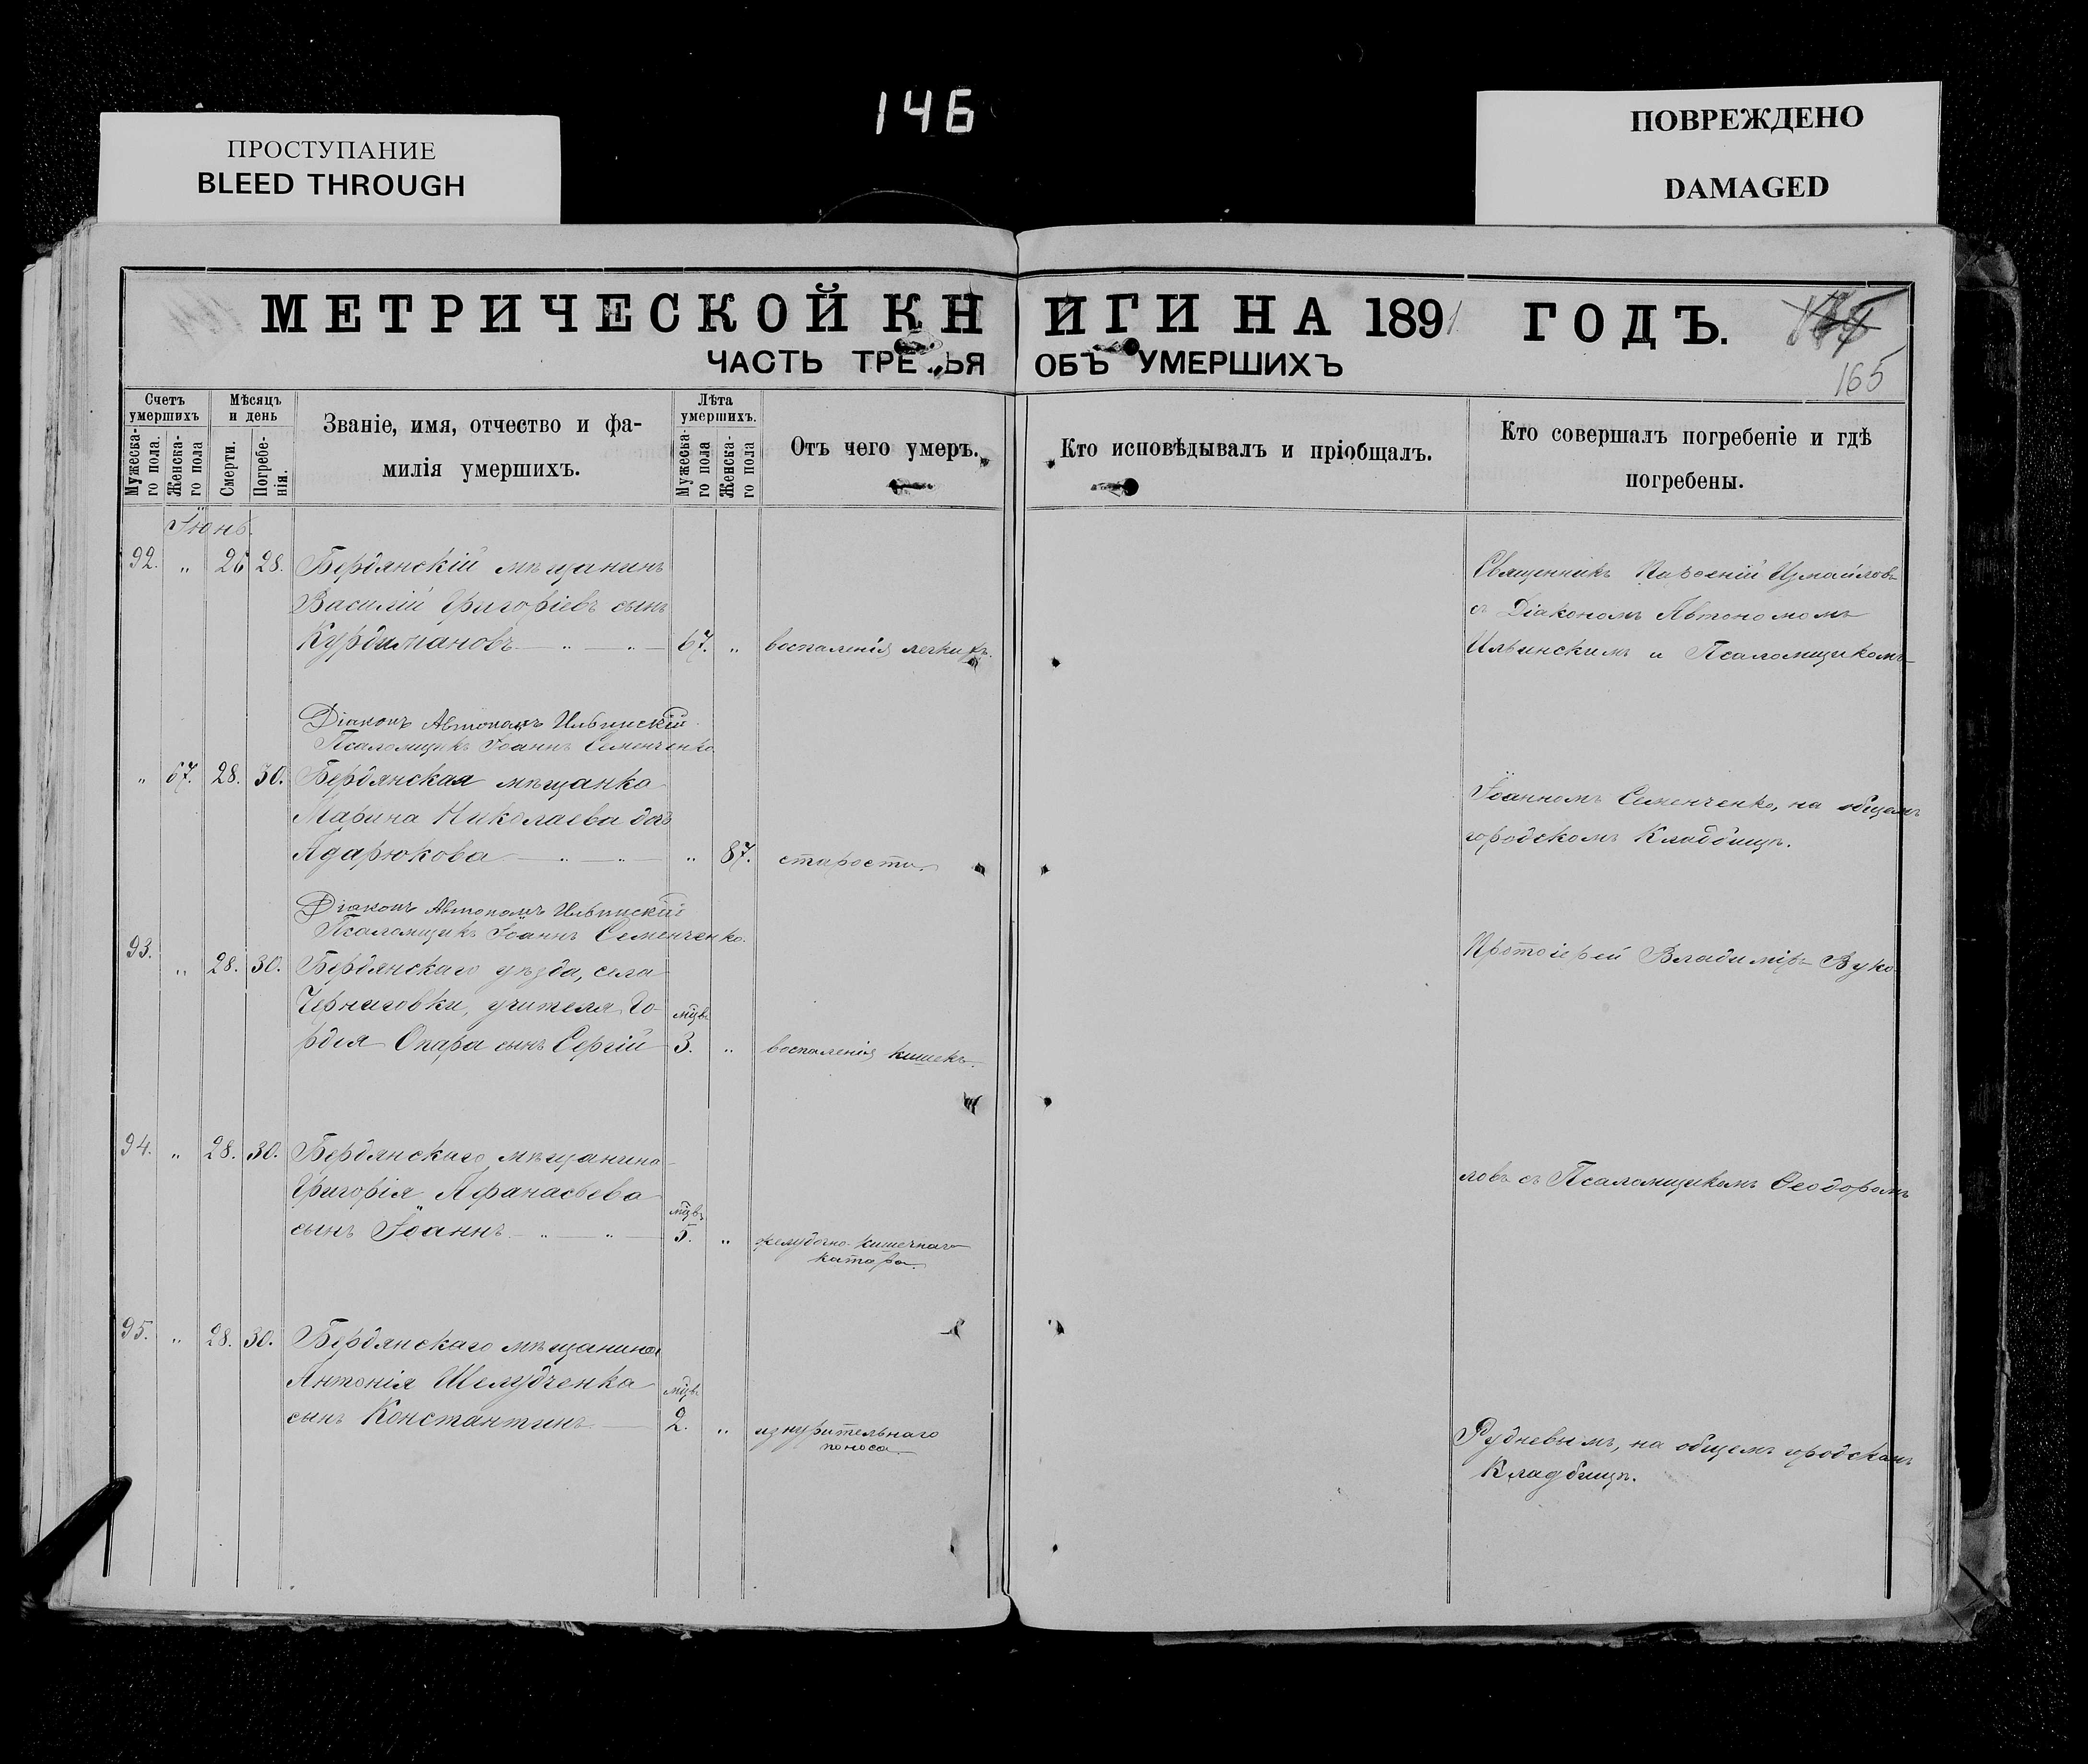 146
ПРОСТУПАНИЕ
BLEED THROUGH
ПОВРЕЖДЕНО
DAMAGED
МЕТРИЧЕСКОЙ КНИГИ НА 1891 ГОДЪ.
165
ЧАСТЬ ТРЕТЬЯ ОБЪ УМЕРШИХЪ
Счетъ умершихъ
Мужеска-го пола.
Женска-го пола
Мѣсяцъ и день
Смерти.
Погребе-нія.
Званіе, имя, отчество и фа-
милія умершихъ.
Лѣта умершихъ.
Мужеска-го пола
Женска-го пола
Отъ чего умеръ.
Кто исповѣдывалъ и пріобщалъ.
Кто совершалъ погребеніе и гдѣ
погребены.
Іюнь.
92. " 26 28. Бердянскій мѣщанинъ
Василій Григоріевъ сынъ
Курдимановъ 67. " воспаленія легкихъ.
Священникъ Парѳеній Измайловъ
съ Діакономъ Автономомъ
Ильинскимъ и Псаломщикомъ
Діаконъ Автономъ Ильинскій
Псаломщикъ Іоаннъ Семенченко
" 67. 28. 30. Бердянская мѣщанка
Марина Николаева дочь
Адарюкова " 87. старости.
Іоанномъ Семенченко, на общемъ
городскомъ Кладбищѣ.
Діаконъ Автономъ Ильинскій
Псаломщикъ Іоаннъ Семенченко.
93. " 28. 30. Бердянскаго уѣзда, села
Черниговки, учителя Го-
рдея Опара сынъ Сергій мцъ 3. " воспаленія кишекъ.
Протоіерей Владиміръ Вуко-
94. " 28. 30. Бердянскаго мѣщанина
Григорія Афанасьева
сынъ Іоаннъ мцъ 5. " желудочно-кишечнаго
катара.
ловъ съ Псаломщикомъ Ѳеодоромъ
95. " 28. 30. Бердянскаго мѣщанина
Антонія Шелудченка
сынъ Константинъ мцъ 2. " изнурительнаго
поноса.
Рудневымъ, на общемъ городскомъ
Кладбищѣ.